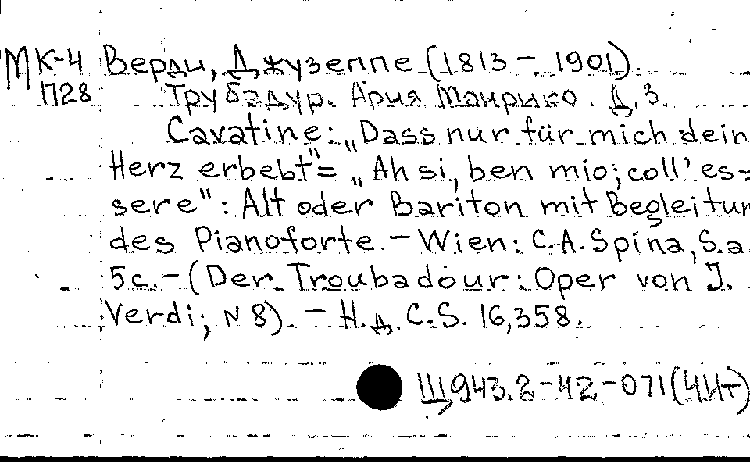 МК-4 Верди, Джузеппе (1813 – 1901).
П28 Трубадур. Ария Манрико. Д.3.
Cavatine: „Dass nur für mich dein
Herz erbebt" = „Ah si, ben mio; coll' es=
sere" : Alt oder Bariton mit Begleitun
des Pianoforte. – Wien: C.A. Spina, S.a.
5c. – (Der Troubadour: Oper von J.
Verdi; N 8). – Н.д. C.S. 16,358.
Щ943.2-42-071(4Ит)